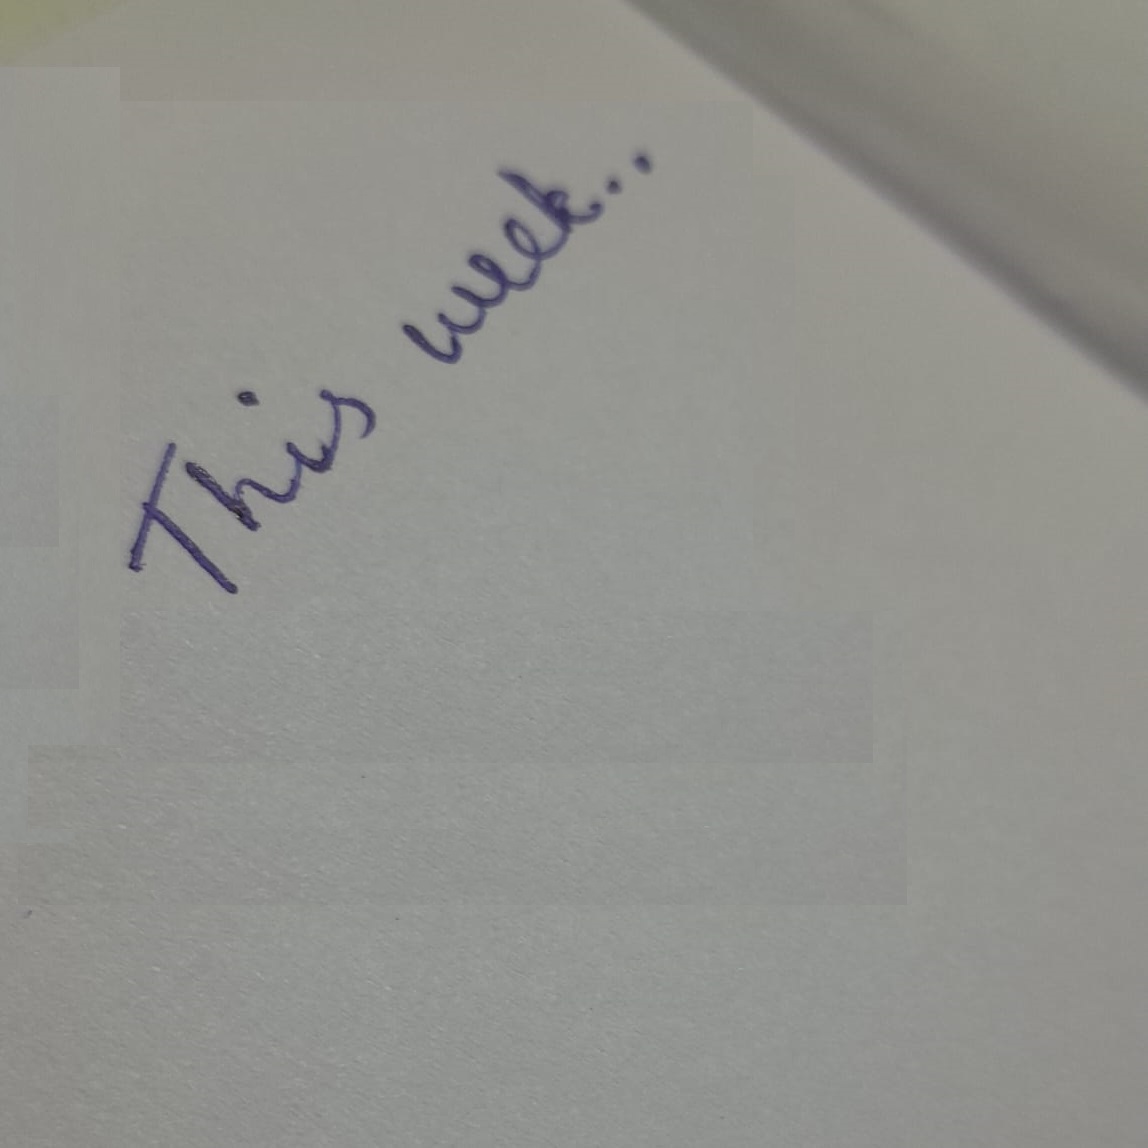 This week...